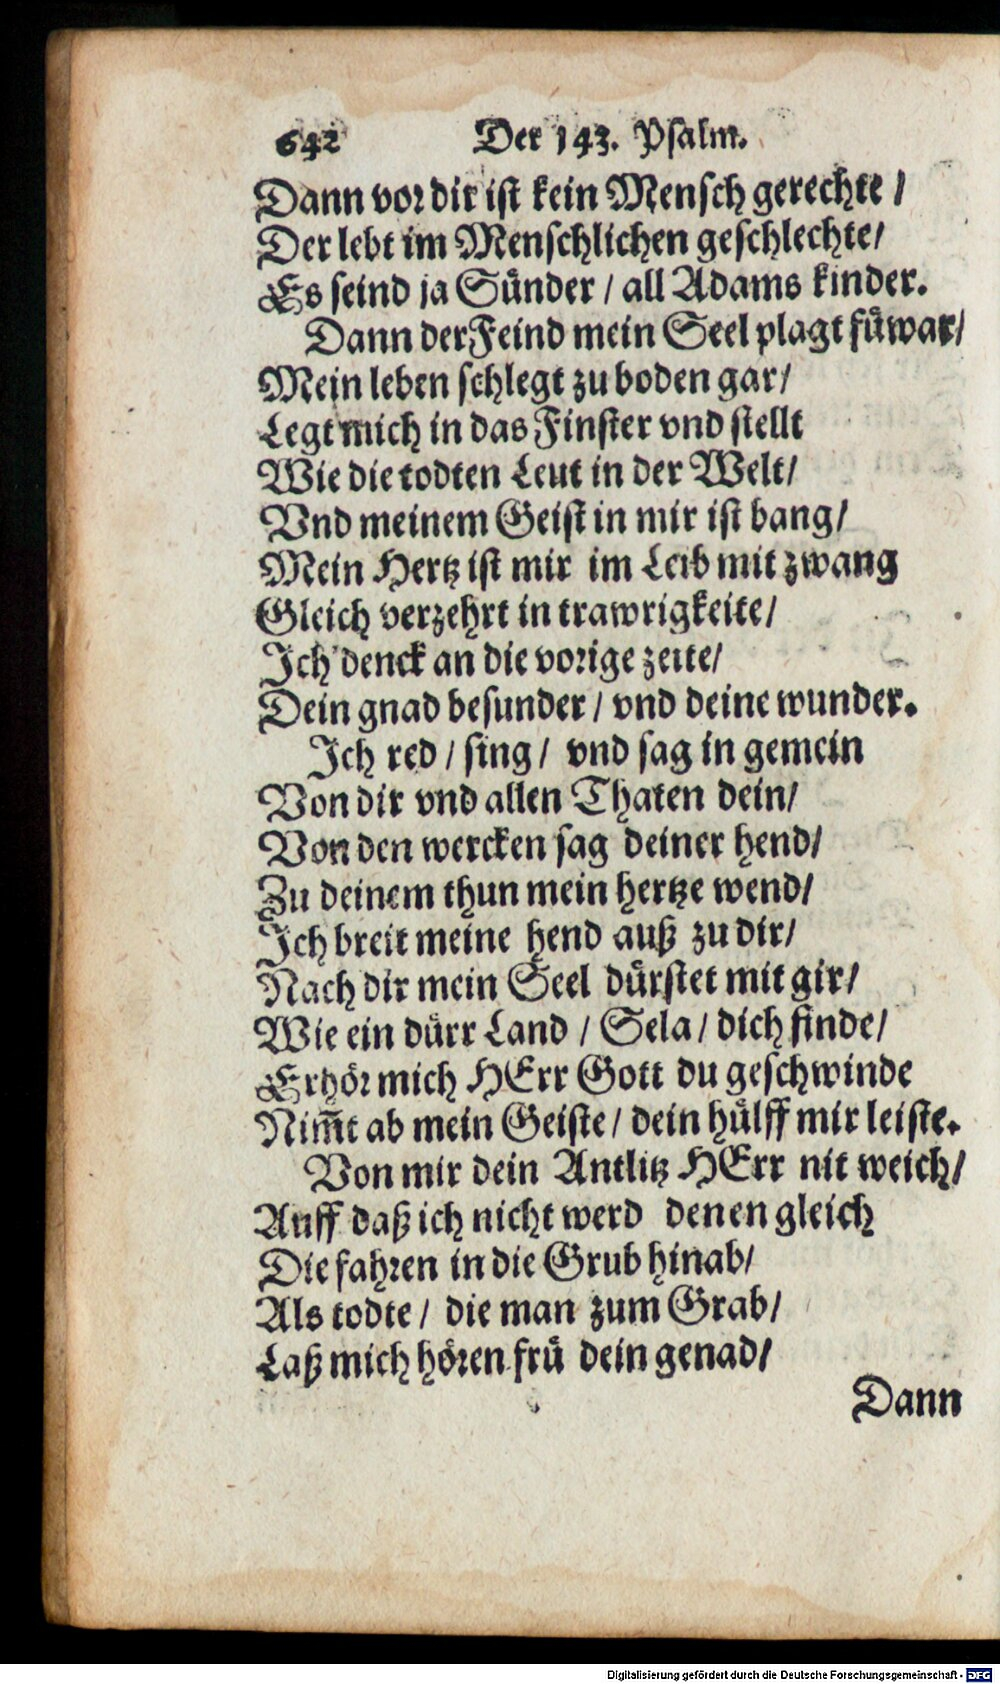 642 Der 143. Psalm.
Dann vor dir ist kein Mensch gerechte /
Der lebt im Menschlichen geschlechte /
Es seind ja Sünder / all Adams kinder.
Dann der Feind mein Seel plagt füwar /
Mein leben schlegt zu boden gar /
Legt mich in das Finster vnd stellt
Wie die todten Leut in der Welt /
Vnd meinem Geist in mir ist bang /
Mein Hertz ist mir im Leib mit zwang
Gleich verzehrt in trawrigkeite /
Ich denck an die vorige zeite /
Dein gnad besunder / vnd deine wunder.
Ich red / sing / vnd sag in gemein
Von dir vnd allen Thaten dein /
Von den wercken sag deiner hend /
Zu deinem thun mein hertze wend /
Ich breit meine hend auß zu dir /
Nach dir mein Seel dürstet mit gir /
Wie ein dürr Land / Sela / dich finde /
Erhör mich HErr Gott du geschwinde
Nim̅t ab mein Geiste / dein hülff mir leiste.
Von mir dein Antlitz HErr nit weich /
Auff daß ich nicht werd denen gleich
Die fahren in die Grub hinab /
Als todte / die man zum Grab /
Laß mich hören frü dein genad /
Dann
Digitalisierung gefördert durch die Deutsche Forschungsgemeinschaft - DFG